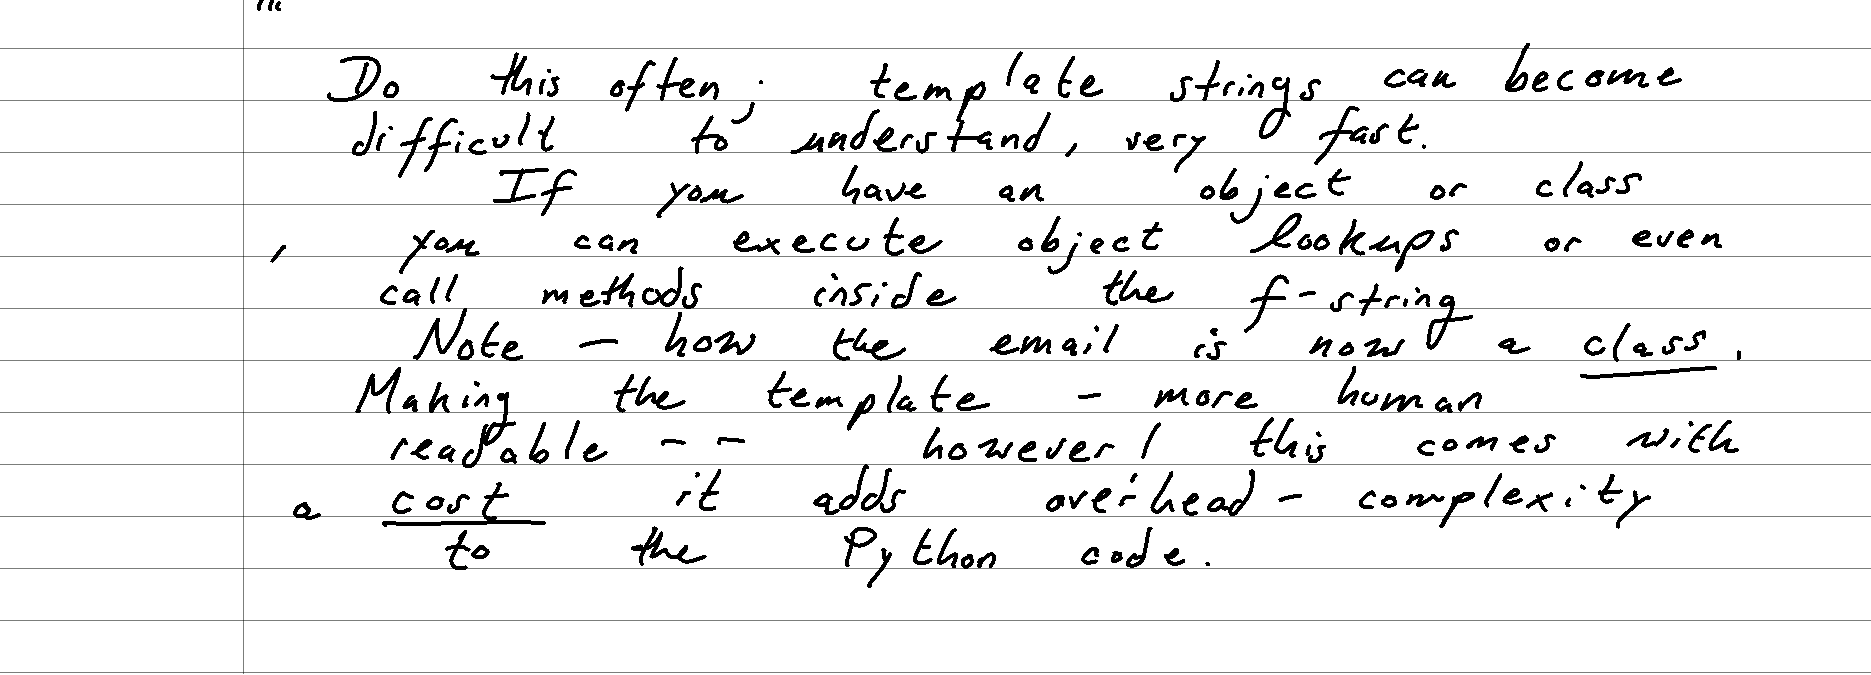 Do this often; template strings can become
difficult to understand, very fast.
If you have an object or class
, you can execute object lookups or even
call methods inside the f-string
Note - how the email is now a class.
Making the template - more human
readable -- however! this comes with
a cost it adds overhead - complexity
to the Python code.